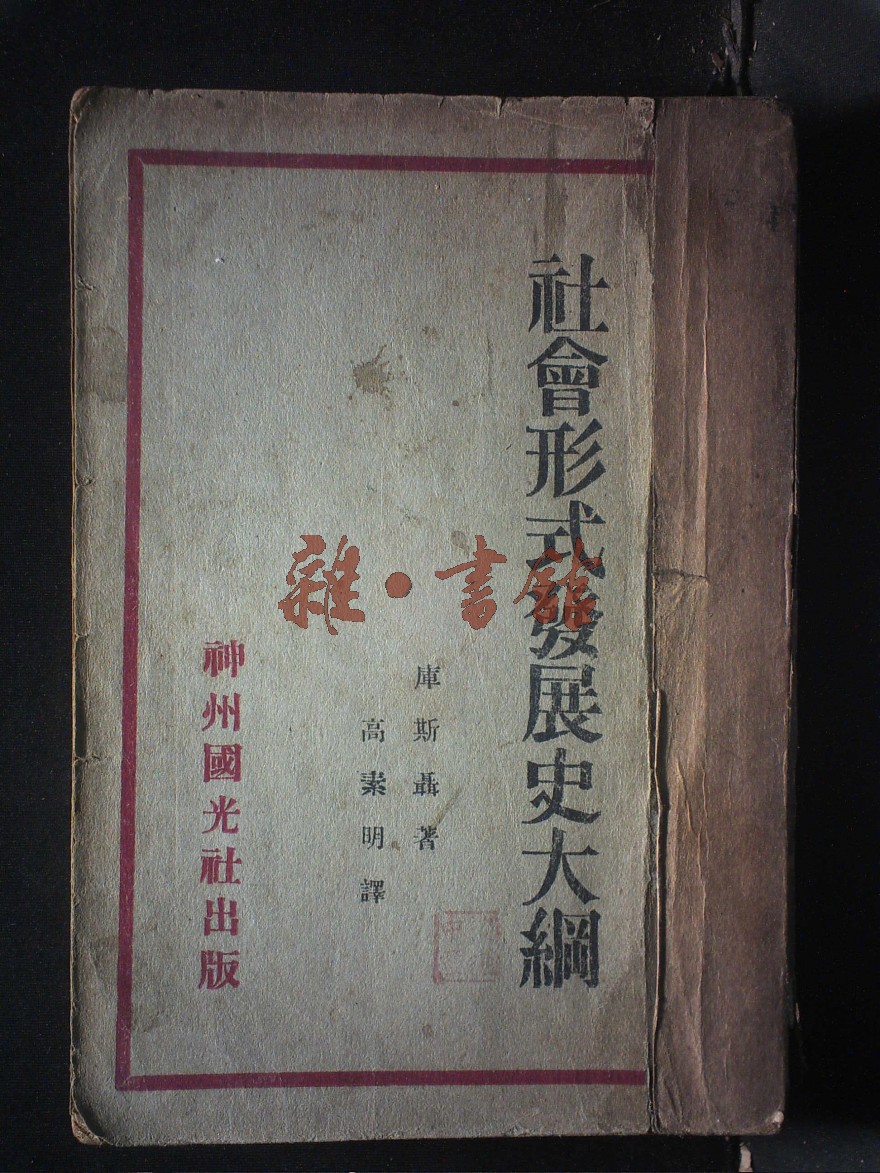 社會形式發展史大綱
庫斯聶著
高素明譯
神州國光社出版
雜·書館